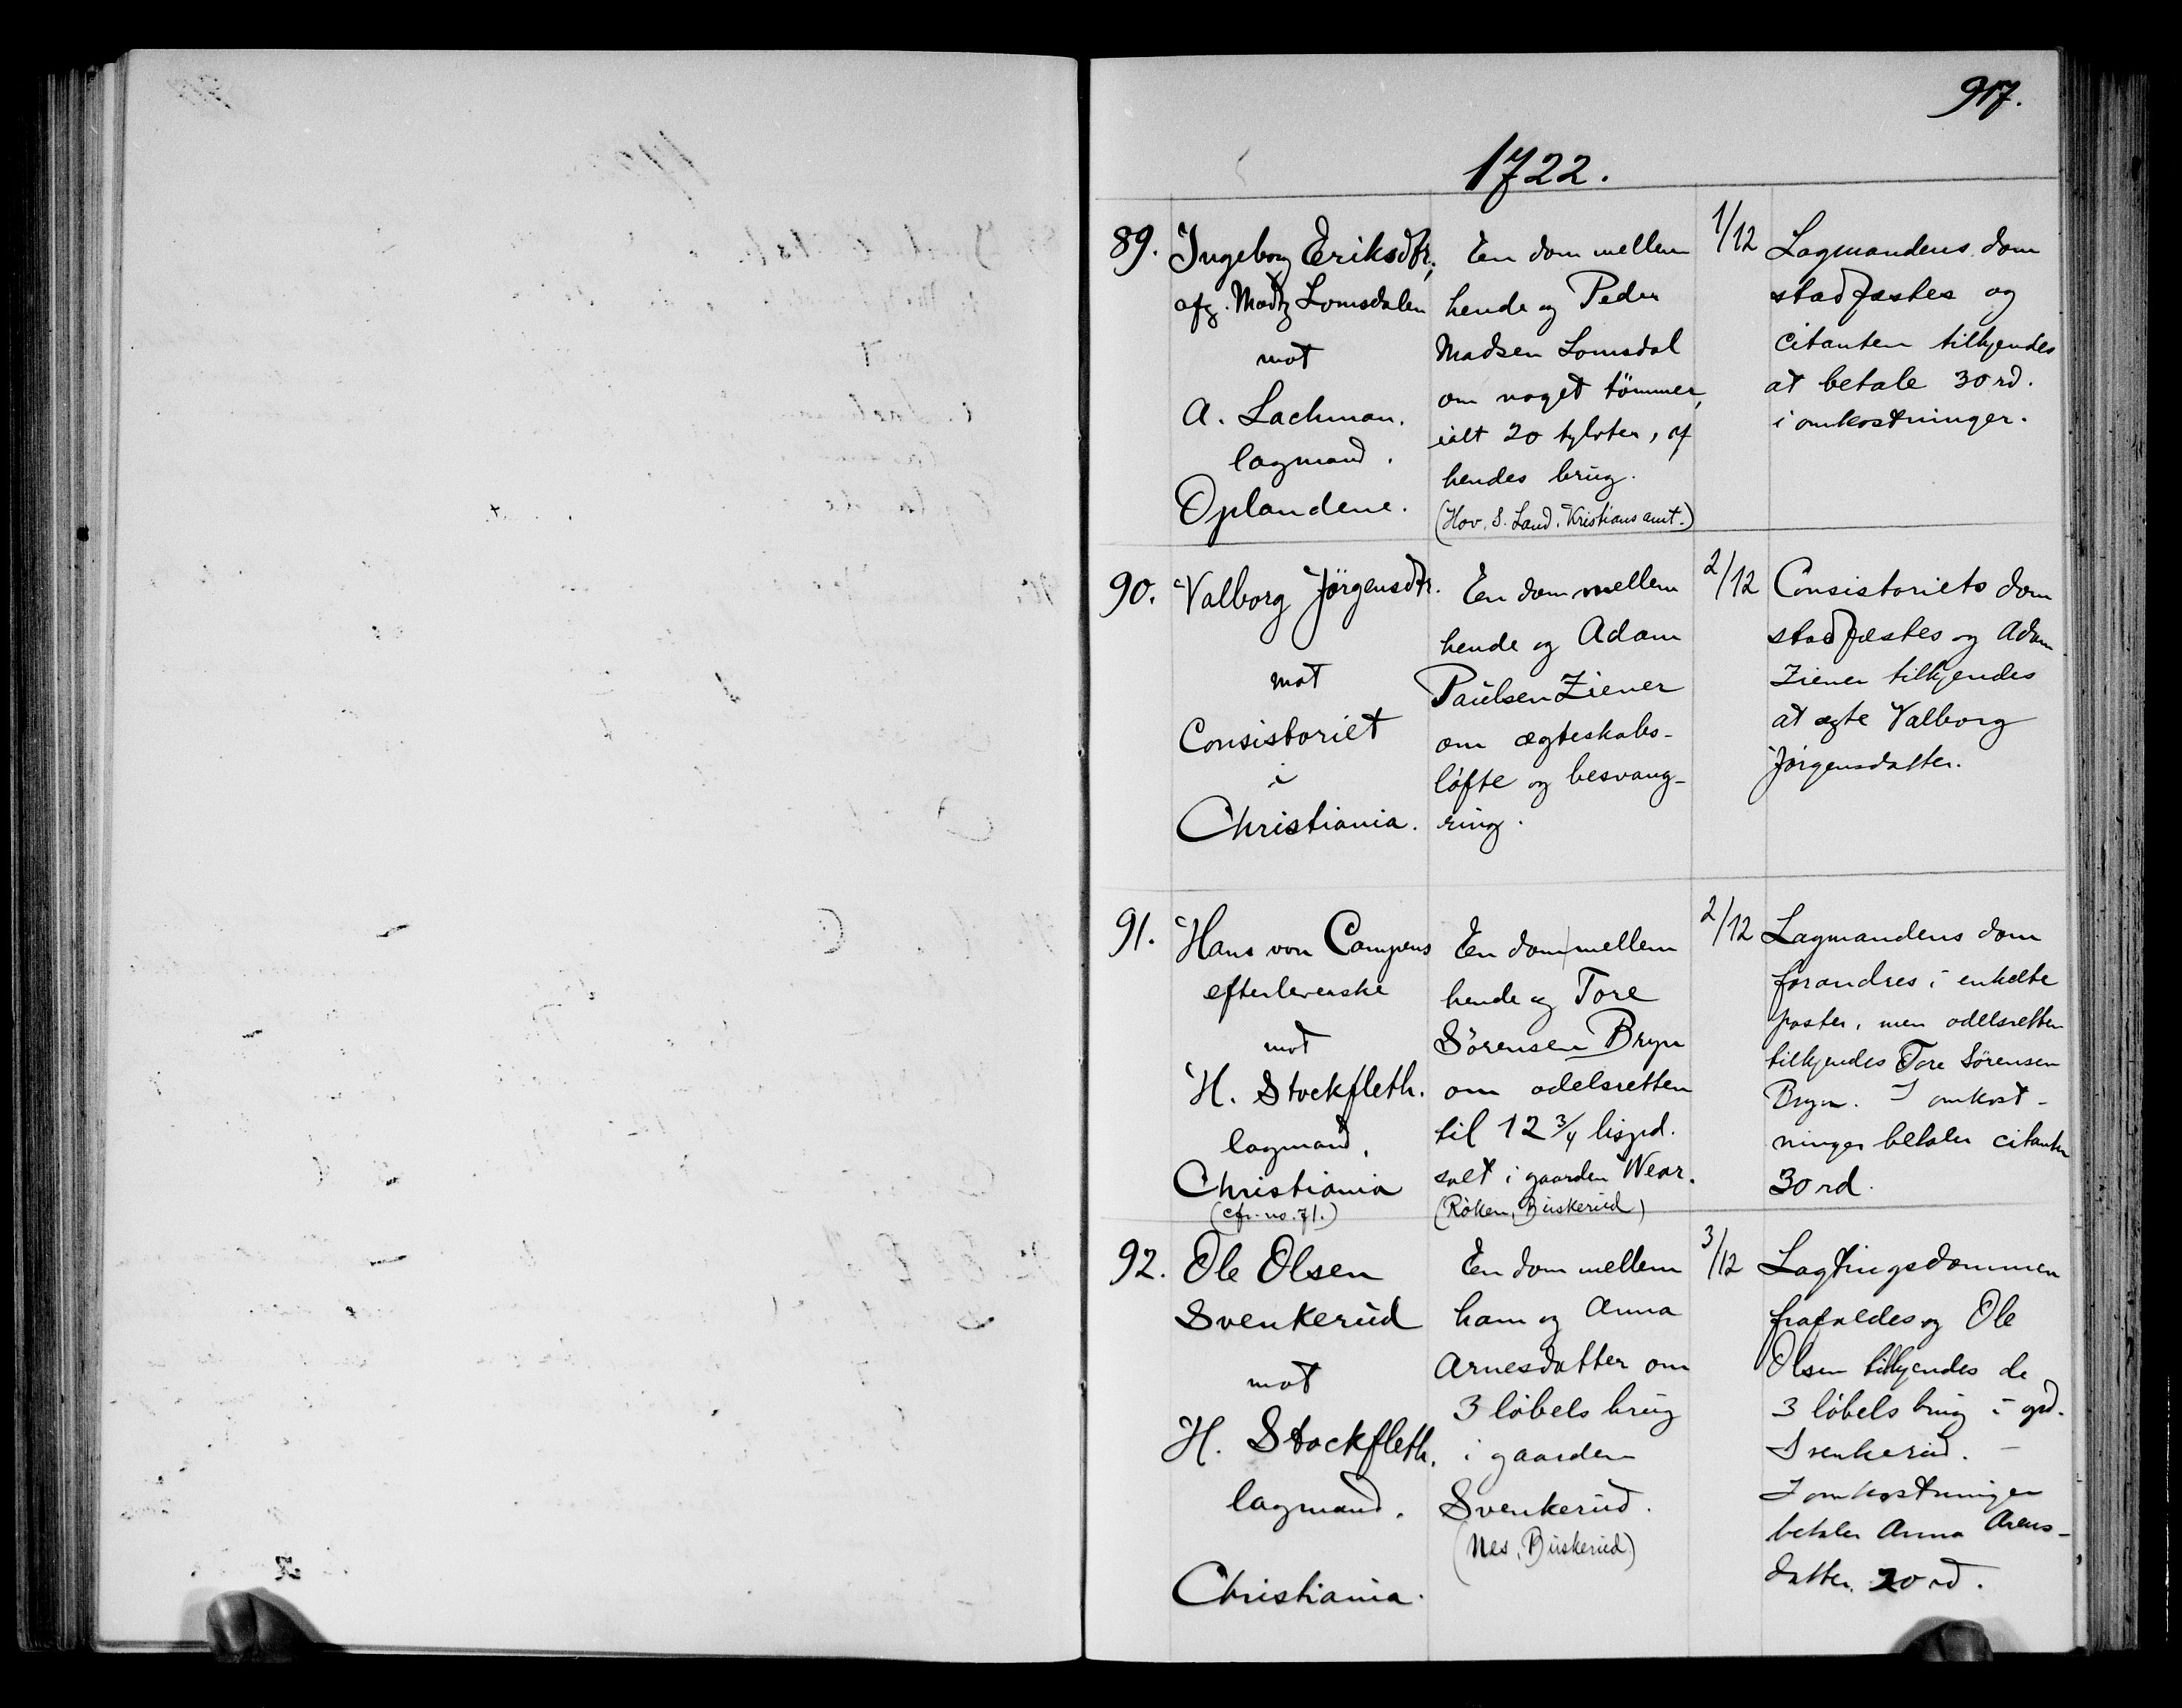 917.
1722.
89.
Ingeborg Eriksdtr.,
afg. Madtz Lomsdalen
mot
A. Lachman.
lagmand.
Oplandene.
En dom mellem
hende og Peder
Madsen Lomsdal
om noget tömmer,
ialt 20 tylvter, af
hendes brug.
(Hov. S. Land. Kristians amt.)
1/12
Lagmandens dom
stadfæstes og
citanten tilkjendes
at betale 30 rd.
i omkostninger.
90.
Valborg Jörgensdtr.
mot
Consistoriet
i
Christiania.
En dom mellem
hende og Adam
Paulsen Ziener
om ægteskabs-
löfte og besvang-
ring.
2/12
Consistoriets dom
stadfæstes og Adam
Ziener tilkjendes
at ægte Valborg
Jörgensdatter.
91.
Hans von Campens
efterleverske
mot
H. Stockfleth.
lagmand.
Christiania
(cfr. no. 71.)
En dom mellem
hende og Tore
Sörensen Bryn
om odelsretten
til 12 3/4 lispd.
salt i gaarden Wear.
(Röken, Buskerud)
2/12
Lagmandens dom
forandres i enkelte
poster, men odelsretten
tilkjendes Tore Sörensen
Bryn. I omkost-
ninger betaler citanten
30 rd.
92.
Ole Olsen
Svenkerud
mot
H. Stockfleth.
lagmand.
Christiania.
En dom mellem
ham og Anna
Arnesdatter om
3 löbels brug
i gaarden
Svenkerud.
(Nes, Buskerud)
3/12
Lagtingsdommen
frafaldes og Ole
Olsen tilkjendes de
3 löbels brug i grd.
Svenkerud. –
I omkostninger
betaler Anna Arens-
datter 20 rd.